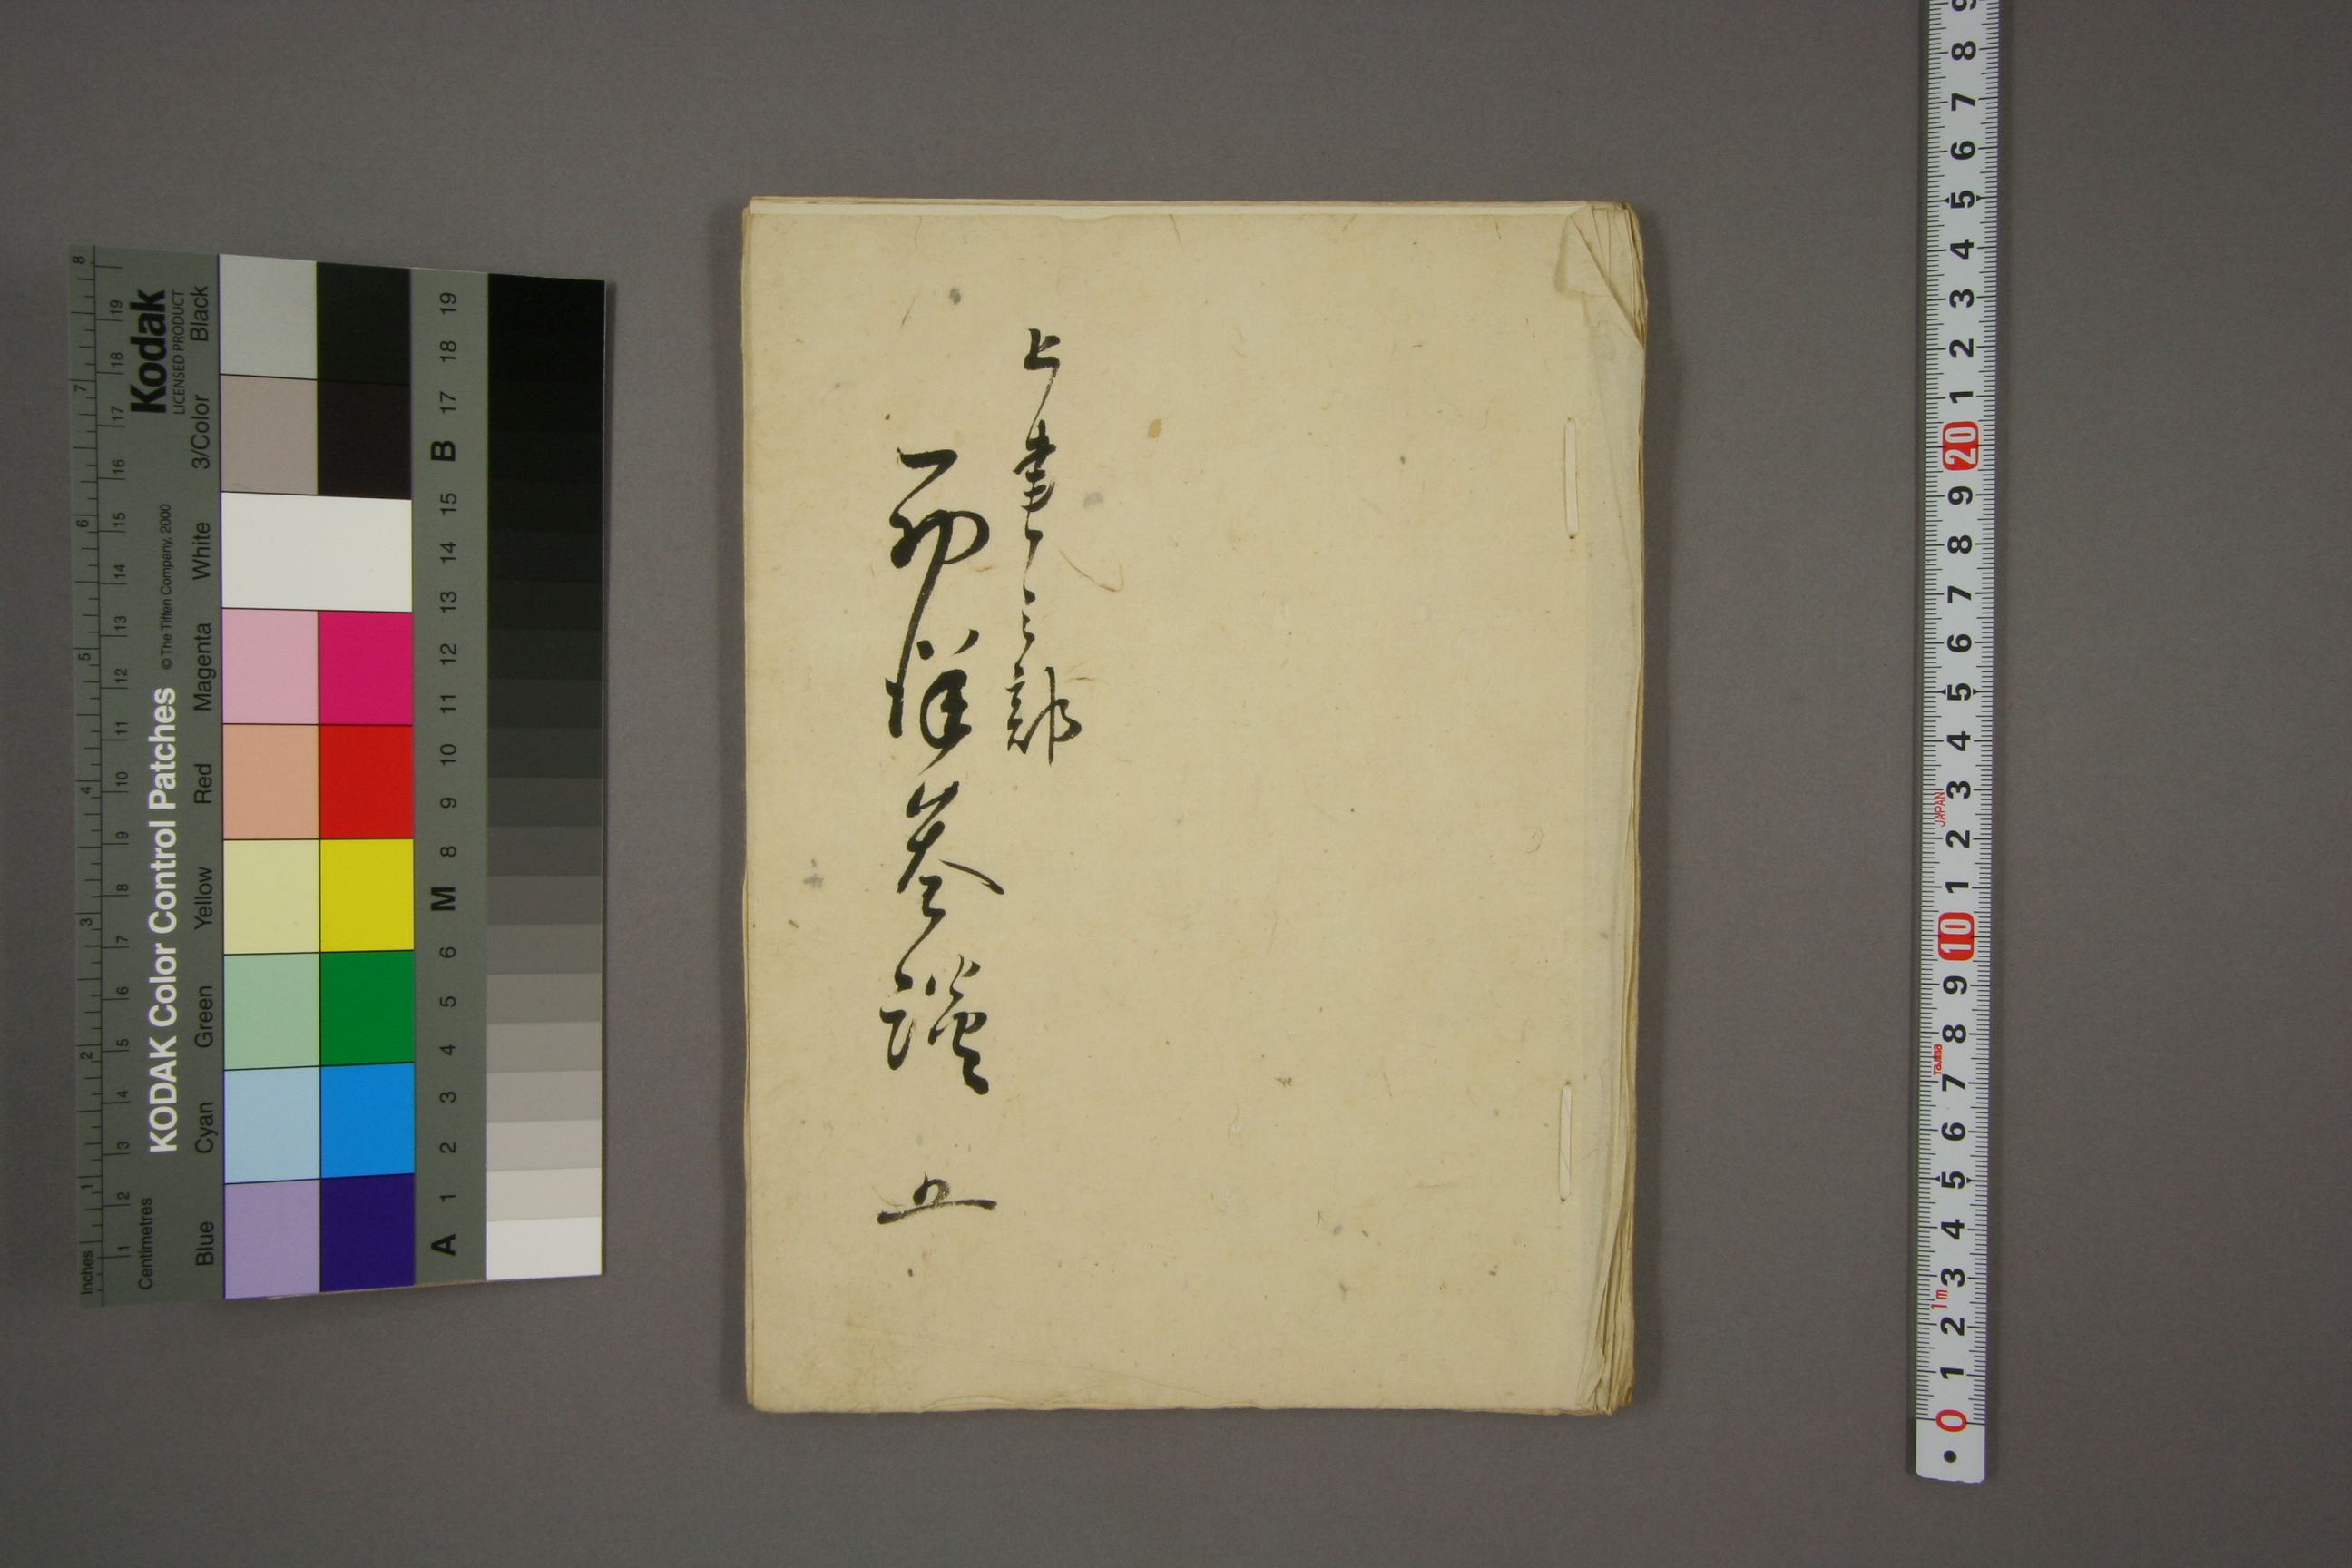 上書之部
五
KODAK Color Control Patches
© The Tiffen Company, 2000
Kodak
LICENSED PRODUCT
Inches
1
2
3
4
5
6
7
8
Centimetres
1
2
3
4
5
6
7
8
9
10
11
12
13
15
16
17
18
19
Blue
Cyan
Green
Yellow
Red
Magenta
White
3/Color
Black
A
1
2
3
4
5
6
M
8
9
10
11
12
13
14
15
B
17
18
19
0
1
2
3
4
5
6
7
8
9
10
1
2
3
4
5
6
7
8
9
20
1
2
3
4
5
6
7
8
9
1m
Tajima
JAPAN